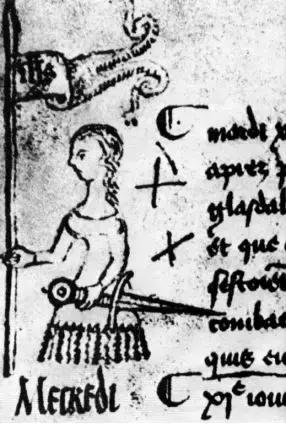 ihs
mardi
apres
glasdal
Et que
sestoien
comba
quis en
MECREDI
xie iou